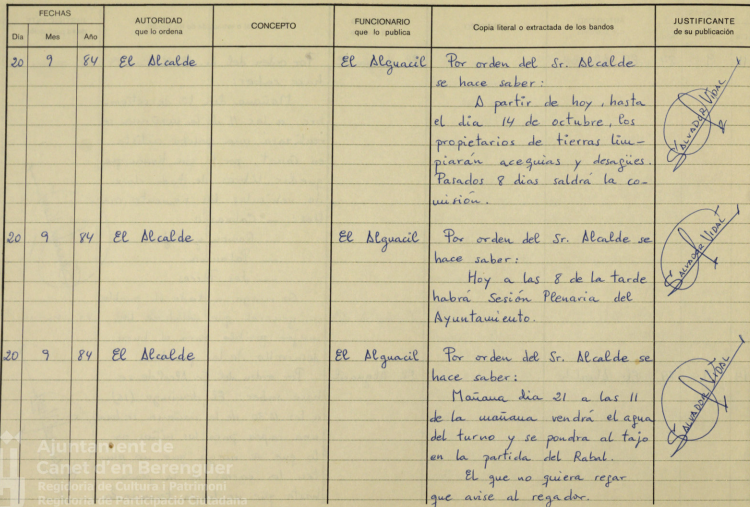 FECHAS
Día Mes Año
AUTORIDAD
que lo ordena
CONCEPTO
FUNCIONARIO
que lo publica
Copia literal o extractada de los bandos
JUSTIFICANTE
de su publicación
20 9 84 El Alcalde El Alguacil Por orden del Sr. Alcalde
se hace saber:
A partir de hoy, hasta
el dia 14 de octubre, los
propietarios de tierras lim-
piarán acequias y desagües.
Pasados 8 dias saldrá la co-
misión.
SALVADOR VIDAL
20 9 84 El Alcalde El Alguacil Por orden del Sr. Alcalde se
hace saber:
Hoy a las 8 de la tarde
habrá Sesión Plenaria del
Ayuntamiento.
SALVADOR VIDAL
20 9 84 El Alcalde El Alguacil Por orden del Sr. Alcalde se
hace saber:
Mañana dia 21 a las 11
de la mañana vendrá el agua
del turno y se pondra al tajo
en la partida del Rabal.
El que no quiera regar
que avise al regador.
SALVADOR VIDAL
Ajuntament de
Canet d'en Berenguer
Regidoria de Cultura i Patrimoni
Regidoria de Participació Ciutadana